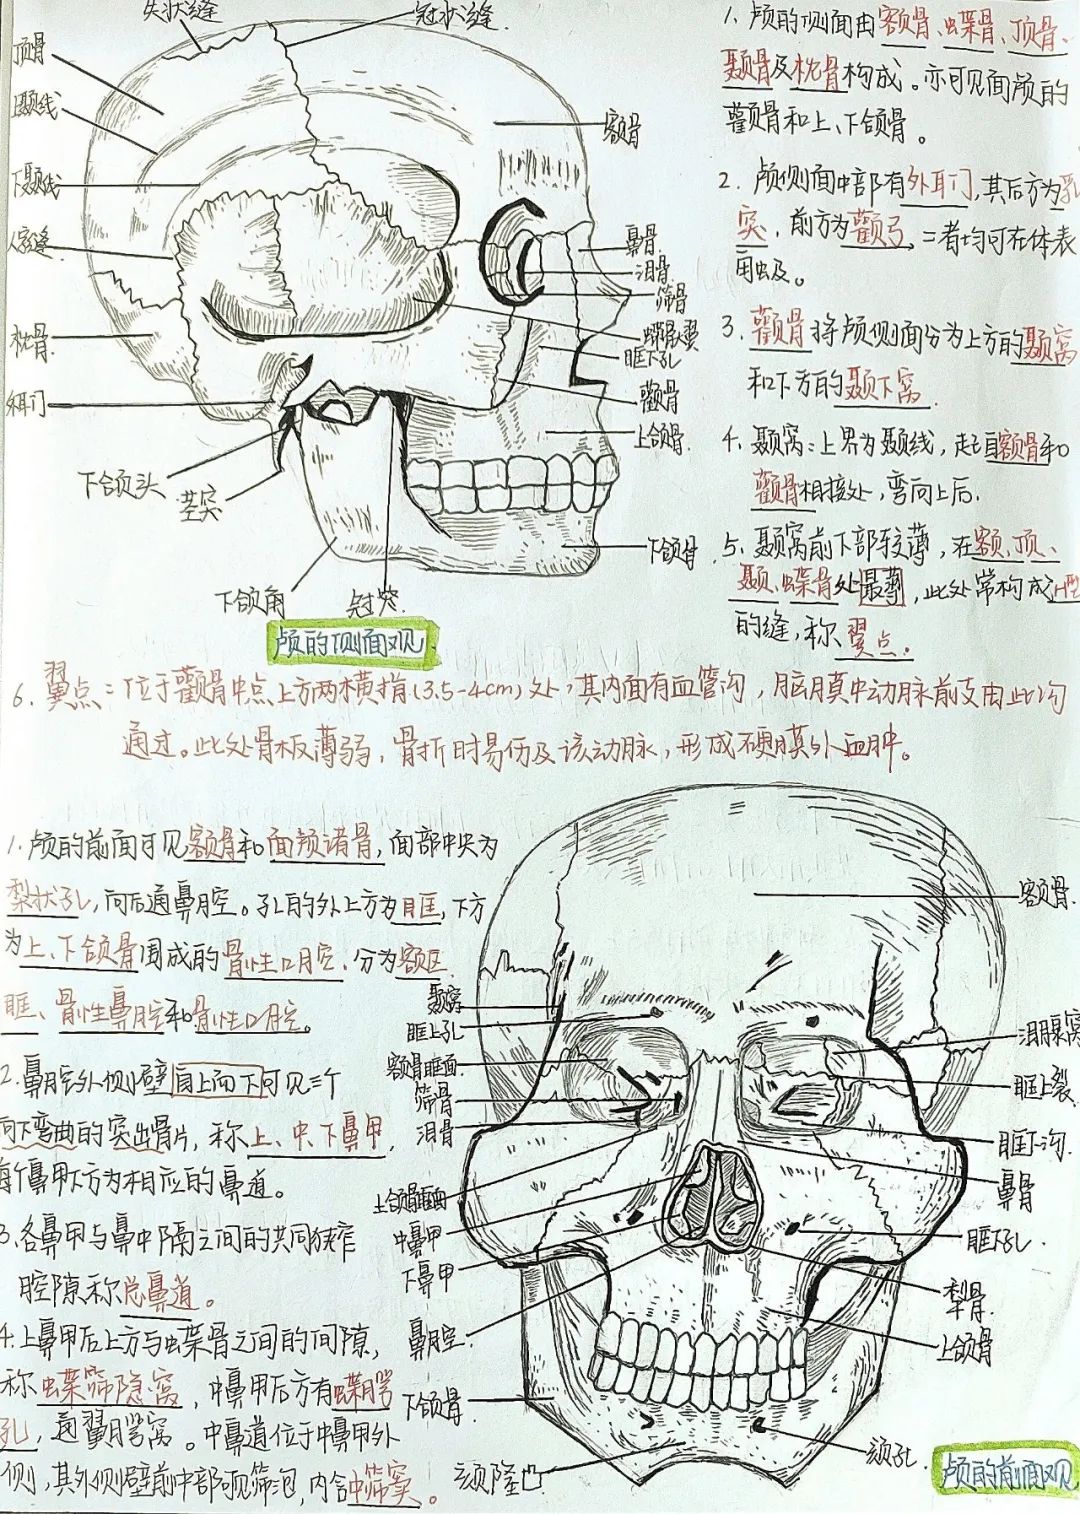 矢状缝
冠状缝
顶骨
上颞线
下颞线
人字缝
枕骨
外耳门
下颌头
茎突
下颌角
冠突
额骨
鼻骨
泪骨
筛骨
蝶骨大翼
眶下孔
颧骨
上颌骨
下颌骨
颅的侧面观
1、颅的侧面由额骨、蝶骨、顶骨、
颞骨及枕骨构成。亦可见面颅的
颧骨和上、下颌骨。
2. 颅侧面中部有外耳门,其后方为乳
突,前方为颧弓,二者均可在体表
触及。
3、颧骨将颅侧面分为上方的颞窝
和下方的颞下窝.
4、颞窝:上界为颞线,起自额骨和
颧骨相接处,弯向上后.
5、颞窝前下部较薄,在额、顶、
颞、蝶骨处最薄,此处常构成H型
的缝,称翼点.
6. 翼点:位于颧骨中点上方两横指(3.5-4cm)处,其内面有血管沟,脑膜中动脉前支由此沟
通过。此处骨板薄弱,骨折时易伤及该动脉,形成硬膜外血肿。
1、颅的前面可见额骨和面颅诸骨,面部中央为
梨状孔,向后通鼻腔。孔的外上方为眶,下方
为上、下颌骨围成的骨性口腔.分为额区、
眶、骨性鼻腔和骨性口腔。
2.鼻腔外侧壁自上而下可见三个
向下弯曲的突出骨片,称上、中、下鼻甲,
每个鼻甲下方为相应的鼻道。
3、各鼻甲与鼻中隔之间的共同狭窄
腔隙称总鼻道。
4.上鼻甲后上方与蝶骨之间的间隙,
称蝶筛隐窝,中鼻甲后方有蝶腭
孔,通翼腭窝。中鼻道位于中鼻甲外
侧,其外侧壁前中部可见筛泡,内含中筛窦。
颞窝
眶上孔
额骨眶面
筛骨
泪骨
上颌骨眶面
中鼻甲
下鼻甲
鼻腔
下颌骨
颏隆凸
额骨
泪腺窝
眶上裂
眶下沟
鼻骨
眶下孔
犁骨
上颌骨
颏孔
颅的前面观